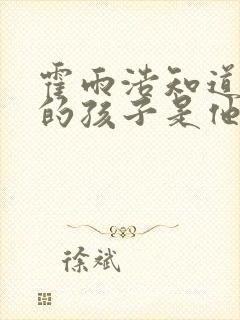 霍雨浩知道
的孩子是他
徐斌